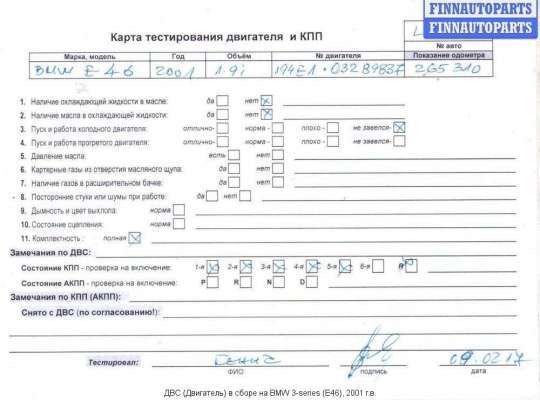 FINNAUTOPARTS
FINNAUTOPARTS
Карта тестирования двигателя и КПП
№ авто
Марка, модель Год Объём № двигателя Показание одометра
BMW E46 2001 1.9i 194E1 · 03289837 265 310
1. Наличие охлаждающей жидкости в масле: да нет
2. Наличие масла в охлаждающей жидкости: да нет
3. Пуск и работа холодного двигателя: отлично- норма - плохо - не завелся-
4. Пуск и работа прогретого двигателя: отлично- норма - плохо - не завелся-
5. Давление масла: есть нет
6. Картерные газы из отверстия масляного щупа: да нет
7. Наличие газов в расширительном бачке: да нет
8. Посторонние стуки или шумы при работе: да нет
9. Дымность и цвет выхлопа: норма
10. Состояние сцепления: норма
11. Комплектность : полная
Замечания по ДВС:
Состояние КПП - проверка на включение: 1-я 2-я 3-я 4-я 5-я 6-я R
Состояние АКПП - проверка на включение: P R N D
Замечания по КПП (АКПП):
Снято с ДВС (по согласованию!):
Тестировал: 09.02.17
ФИО подпись дата
ДВС (Двигатель) в сборе на BMW 3-series (E46), 2001 г.в.